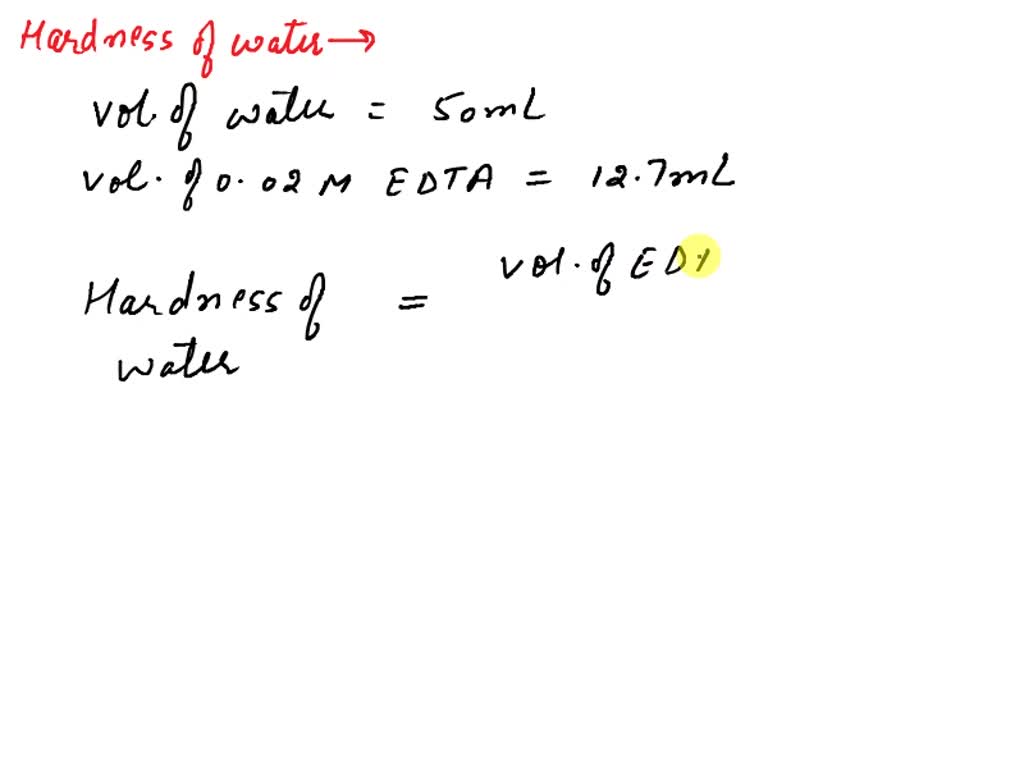 Hardness of water →
vol. of water = 50mL
vol. of 0.02 M EDTA = 12.7mL
vol. of ED
Hardness of =
water